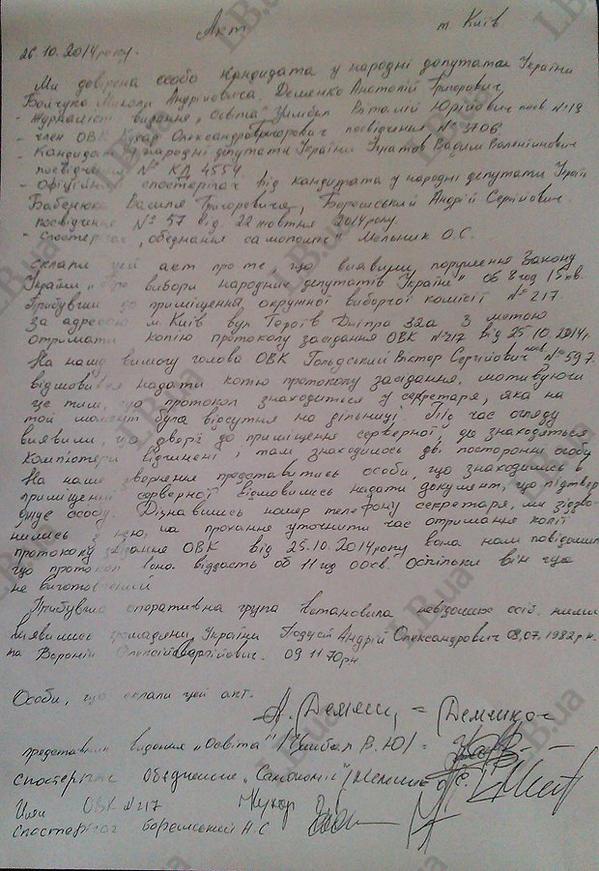 Акт м. Київ
26.10.2014 року.
Ми довірена особа кандидата у народні депутатах України
Бойчука Миколи Андрійовича Деменко Анатолій Григорович
- Журналіст видання "Освіта" Віталій Юрійович посв №13
- член ОВК Кухар посвідчення № 3706
- Кандидат в народні депутати України Ігнатов Вадим Валентинович
посвідчення № КД 4554
- Офіційний спостерігач від кандидата у народні депутати
Бабенюка Василя Григоровича, Андрій Сергійович
посвідчення № 57 від 22 жовтня 2014 року
- спостерігач "обєднання самопоміч" Мельник О.С.
склали цей акт про те що виявили порушення Закону
України "Про вибори народних депутатів України" об 8 год 15 хв.
Прибувши до приміщення окружної виборчої комісії № 217.
за адресою м. Київ вул Героїв Дніпра 32а з метою
отримати копію протоколу засідання ОВК №217 від 25.10.2014р
На нашу вимогу голова ОВК Гольдський Віктор Сергійович посв № 597
відмовився надати копію протоколу засідання, мотивуючи
це тим, що протокол знаходиться у секретаря, яка на
той момент була відсутня на дільниці. Під час огляду
виявили, що двері до приміщення серверної, де знаходяться
компютери відчинені і там знаходилось дві посторонні особи
На наше звернення представитись особи, що знаходились в
приміщенні серверної відмовились надати документ, що підтвер
джує особу. Дізнавшись номер телефону секретаря, ми зідзво
нились з нею, на прохання уточнити час отримання копії
протоколу засідання ОВК від 25.10.2014 року вона нам повідомила
що протокол вона віддасть об 11 год 00 хв. Оскільки він ще
не виготовлений
Прибувша оперативна група встановила невідомих осіб. ними
виявились громадяни України Андрій Олександрович 08.07.1982 р.н.
та Воронін 09.11.70 рн.
Особи, що склали цей акт.
А. Деменко
представник видання "Освіта"
спостерігач Обєднання "Самопоміч" Мельник О.С.
Член ОВК №217 Кухар
спостерігач А.С
LB.ua
LB.ua
LB.ua
LB.ua
LB.ua
LB.ua
LB.ua